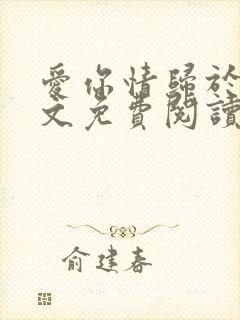 愛你情歸於
文免費閱讀
俞建春